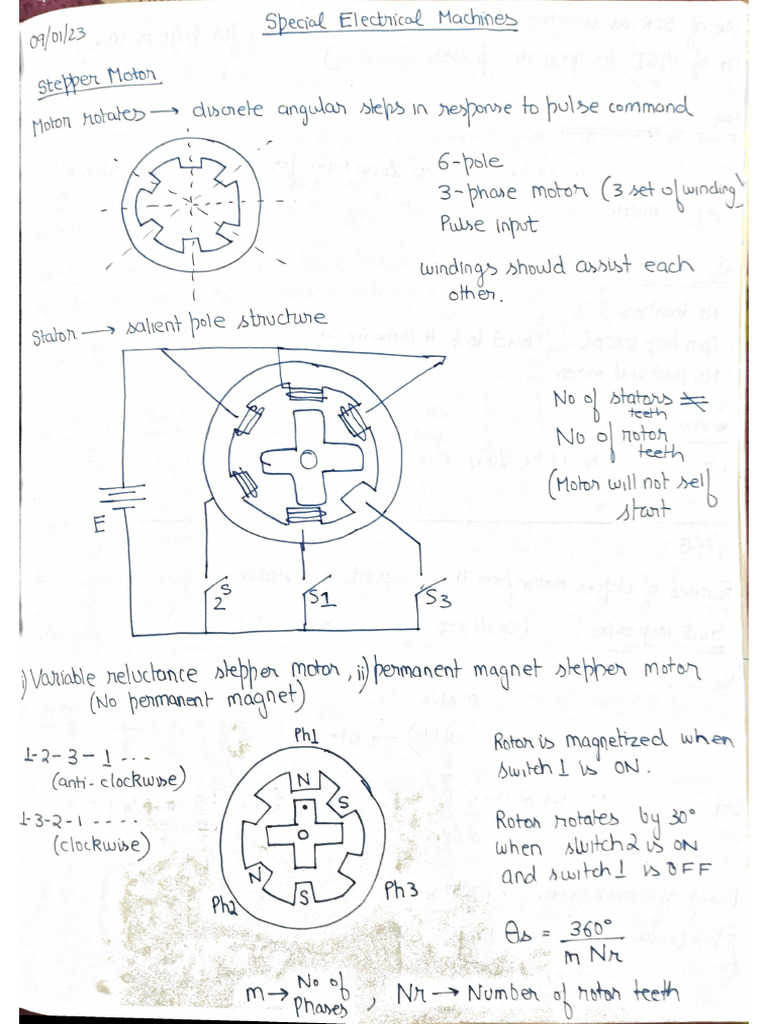 Special Electrical Machines
09/01/23
Stepper Motor
Motor rotates → discrete angular steps in response to pulse command
6-pole
3-phase motor (3 set of winding)
Pulse input
windings should assist each
other.
Stator → salient pole structure
No of stators ≠
teeth
No of rotor
teeth
(Motor will not self
start
E
S
2
S1
S3
i) Variable reluctance stepper motor, ii) permanent magnet stepper motor
(No permanent magnet)
Ph1
1-2-3-1 ...
(anti-clockwise)
1-3-2-1 ....
(clockwise)
N
S
N
S
Ph2
Ph3
Rotor is magnetized when
switch 1 is ON.
Rotor rotates by 30°
when switch 2 is ON
and switch 1 is OFF
θs = 360°
m Nr
m → No of
Phases , Nr → Number of rotor teeth